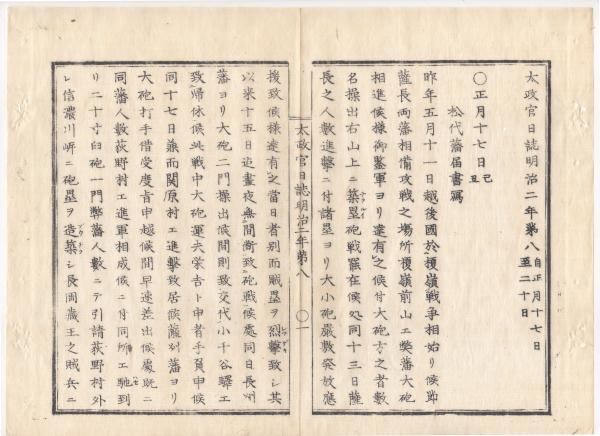 太政官日誌明治二年第八 自正月十七日
至二十日
○正月十七日 己
丑
松代藩届書寫
昨年五月十一日越後國於榎嶺戰爭相始リ候節
薩長両藩相備攻戰之場所榎嶺前山エ弊藩大砲
相進候様御鑒軍ヨリ達有之候付大砲方之者數
名操出右山上ニ築壘砲戰罷在候処同十三日薩
長之人數進擊ニ付諸壘ヨリ大小砲嚴敷發放應
太政官日誌明治二年第八 ○一
援致候様達有之當日者別而賊壘ヲ烈擊致シ其
以来十五日迠晝夜無間断致砲戰候處同日長州
藩ヨリ大砲二門操出候間則致交代小千谷驛エ
致歸休候此戰中大砲運夫榮吉ト申者手負申候
同十七日兼而関原村エ進擊致居候薩州藩ヨリ
大砲打手借受度旨申越候間早速差出候處既ニ
同藩人數荻野村エ進軍相成候ニ付同所エ馳到
リ二十寸臼砲一門弊藩人數ニテ引請荻野村外
レ信濃川岍ニ砲壘ヲ造築シ長岡藏王之賊兵ニ